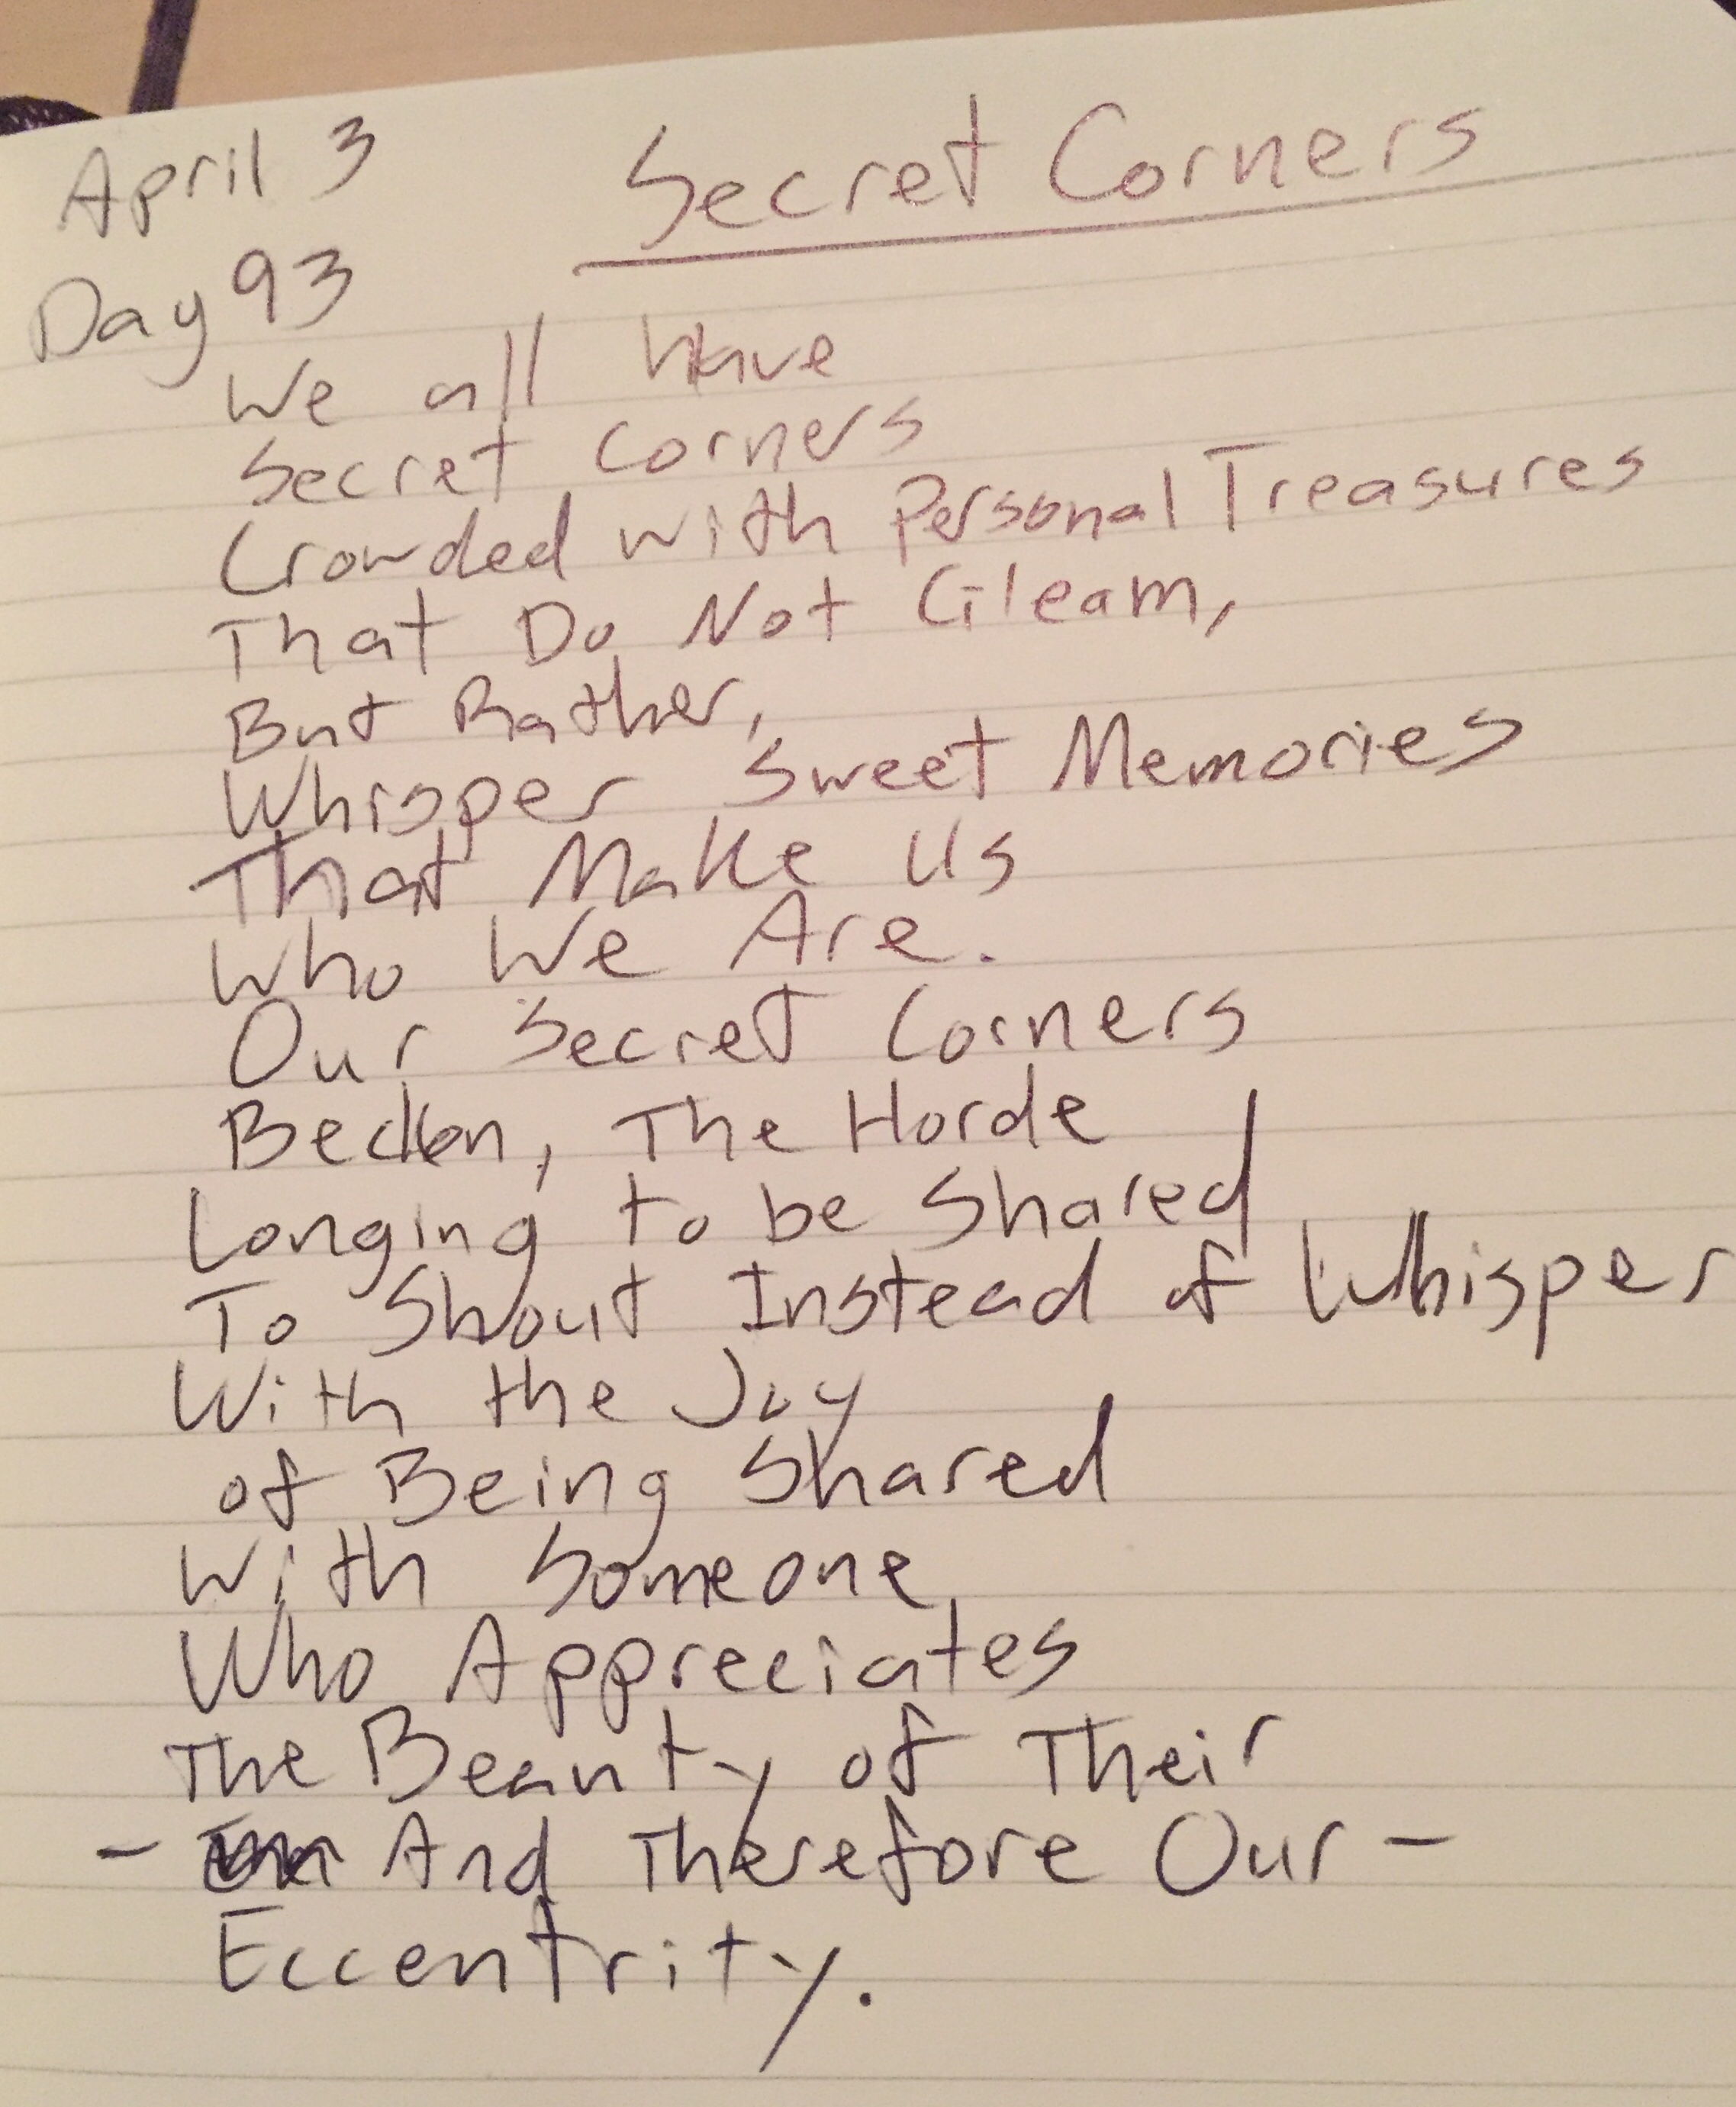 April 3
Secret Corners
Day 93
We all have
Secret Corners
Crowded with Personal Treasures
That Do Not Gleam,
But Rather,
Whisper Sweet Memories
That Make Us
Who We Are.
Our Secret Corners
Beckon, The Horde
Longing to be Shared
To Shout Instead of Whisper
With the Joy
of Being Shared
With Someone
Who Appreciates
The Beauty of Their
- And Therefore Our -
Eccentrity.